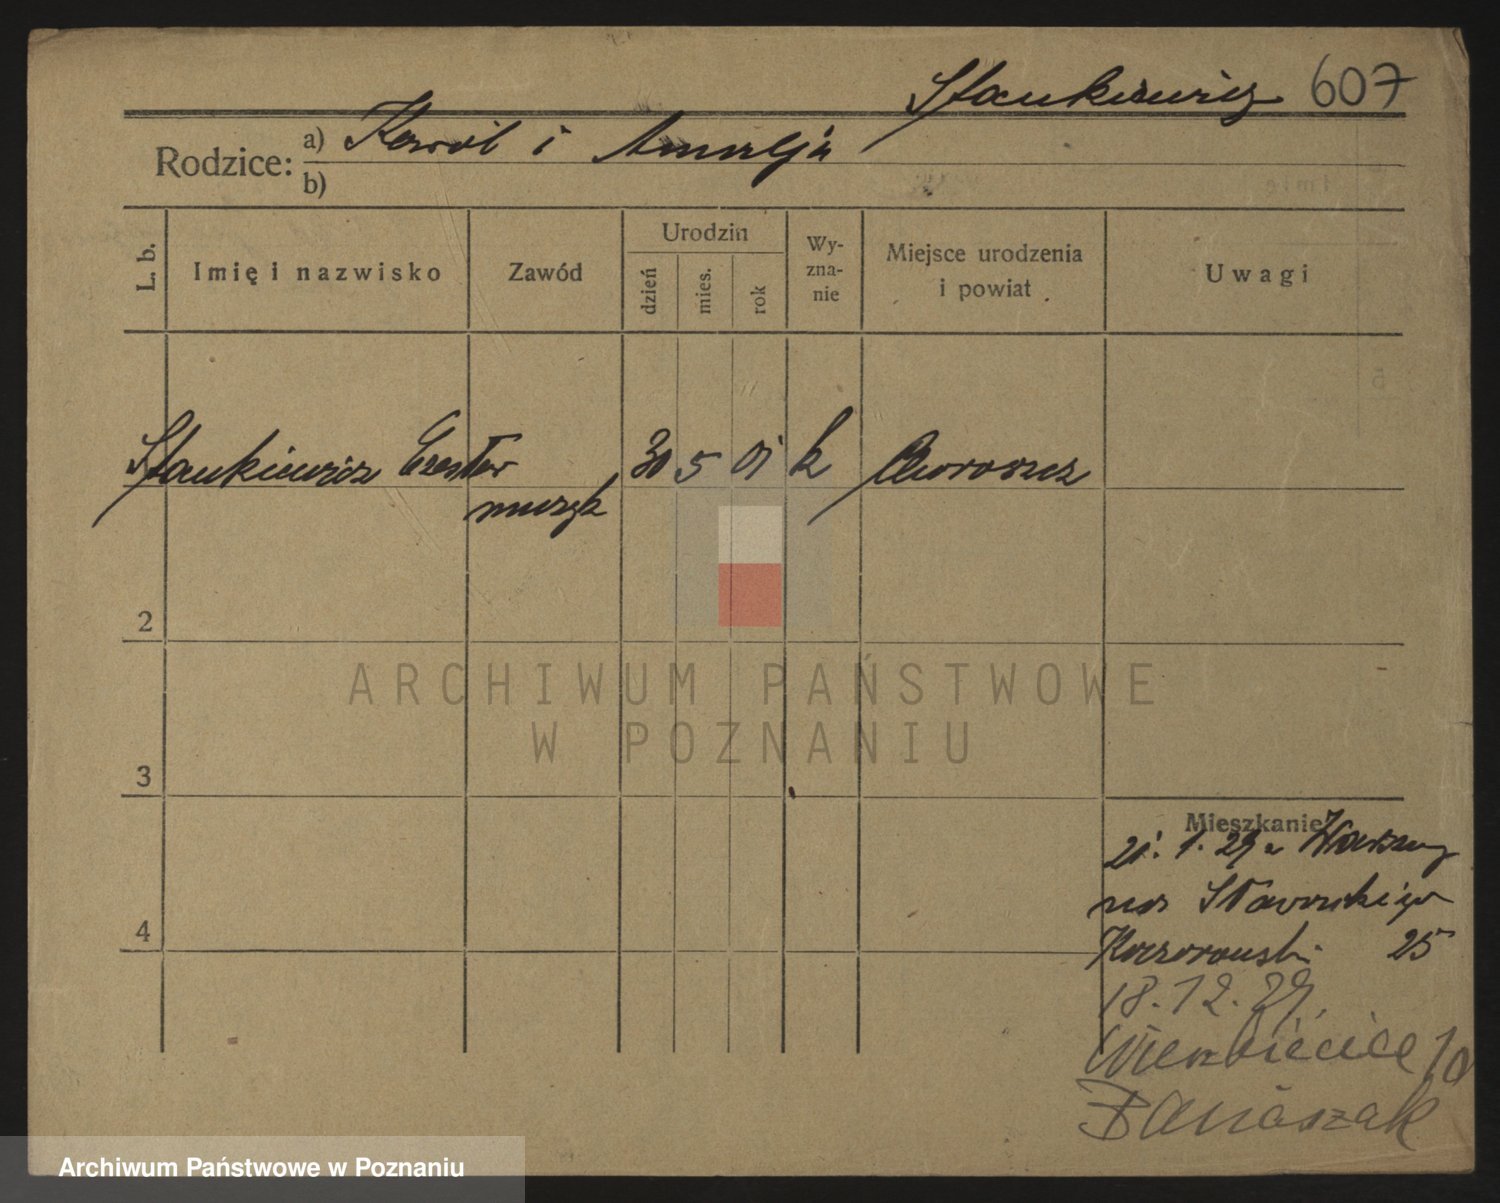 Stankiewicz 607
Rodzice: a) Karol i Amalja
b)
L. b. Imię i nazwisko Zawód Urodzin dzień mies. rok Wy-zna-nie Miejsce urodzenia i powiat Uwagi
Stankiewicz Czesław 30 5 01 k Choroszcz
muzyk
2
ARCHIWUM PAŃSTWOWE
W POZNANIU
3
Mieszkanie
21. 1. 29 z Warszawy
25
4
18. 12. 29
Wierzbięcice 10
Banaszak
Archiwum Państwowe w Poznaniu